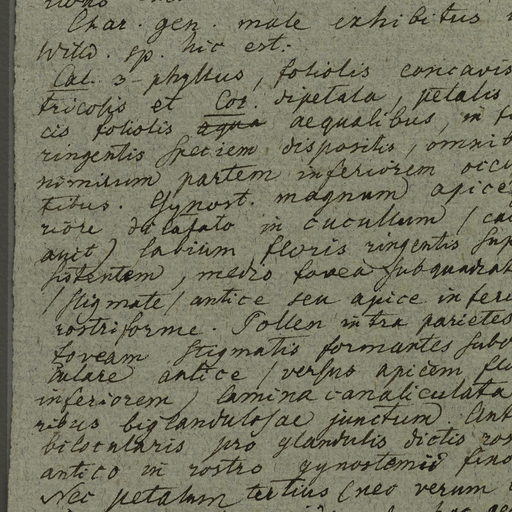 Char. gen. male exhibitus
Willd. sp. hic est.
Cal. 3-phyllus, foliolis concavis
tricolis et Cor. dipetala, petalis
cis foliolis aequalibus, in
ringentis speciem dispositis, omnib
nimirum partem inferiorem occu
tibus. Gynost. magnum apice
riore dilatato in cucullum (ca
avit) labium floris ringentis sup
sistentem, medio fovea subquadrat
/stigmate/ antice seu apice inferi
rostriforme. Pollen intra parietes
foveam stigmatis formantes
culare antice (versus apicem
inferiorem) lamina canaliculata
ribus biglandulosae junctum. Ant
bilocularis pro glandulis dictis ros
antico in rostro gynostemii
Nec petalum tertius (neo verum